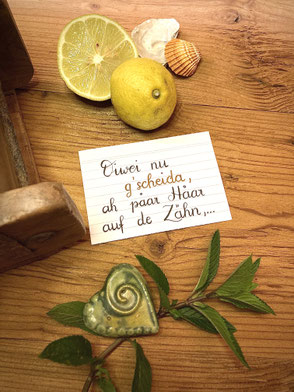 Oiwei nu
g'scheida,
ah påar Håar
auf de Zåhn,...